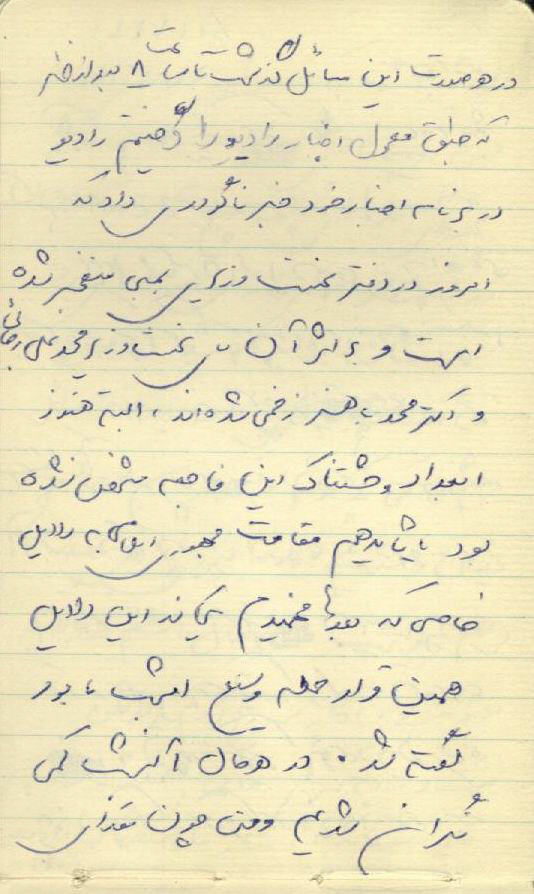 در هر صورت این مسائل گذشت تا ساعت ۸ بعد از ظهر
که طبق معمول اخبار رادیو را گرفتیم رادیو
در برنامه اخبار خود خبر ناگواری داد که
امروز در دفتر نخست وزیری بمبی منفجر شده
است و بر اثر آن نخست وزیر محمد علی رجائی
دکتر محمد باهنر زخمی شده‌اند، البته هنوز
ابعاد وحشتناک این فاجعه مشخص نشده
بود یا شاید هم مقامات جمهوری اسلامی به دلایل
خاصی که بعداً فهمیدم یکی از این دلایل
همین قرار حمله وسیع امشب ما بود
گفته شد. در هر حال آنشب کمی
نگران شدیم ومن چون مقداری